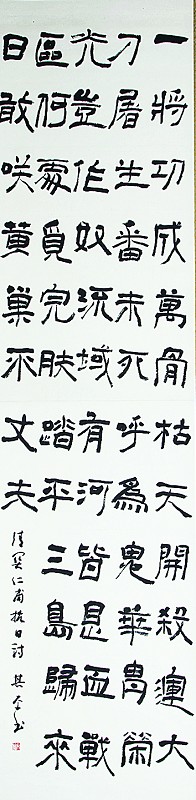 一將功成萬骨枯天開殺運大
刀屠生番未死呼為鬼華胄榮
光豈作奴流域有河皆是血戰
區何處覓完膚踏平三島歸來
日敢咲黃巢不丈夫
仁甫抗日詩 書